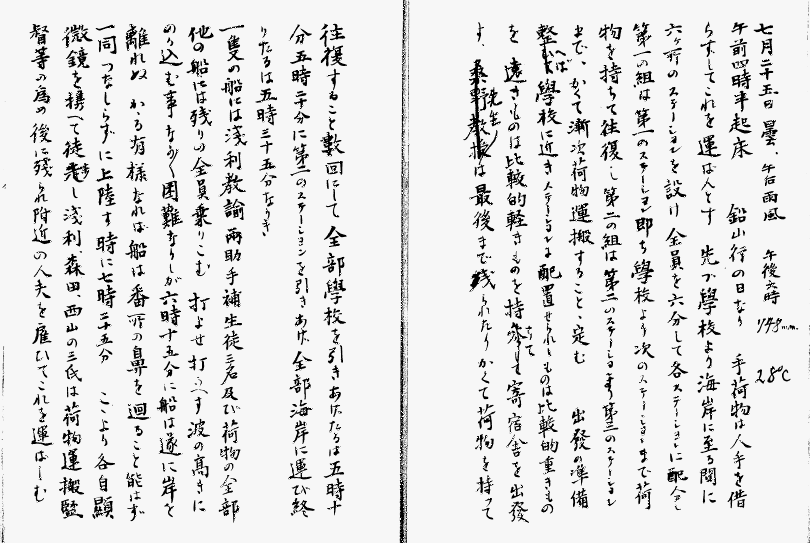 七月二十五日 曇、午后雨風 午後六時 748m.m. 28°C
午前四時半起床 鉛山行の日なり 手荷物は人手を借
らずしてこれを運ばんとす 先づ學校より海岸に至る間に
六ヶ所のステーションを設け 全員を六分して各ステーションに配分し
第一の組は第一のステーション即ち學校より次のステーションまで荷
物を持ちて往復し 第二の組は第二のステーションより第三のステーション
まで、かくて漸次荷物運搬すること、定む 出發の準備
整へば學校に近きステーションに配置せられしものは比較的重きもの
を 遠きものは比較的軽きものを持ちて 寄宿舎を出發
す、 先生は最後まで残られたり かくて荷物を持って
往復すること數回にして 全部學校を引きあげたるは五時十
分 五時二十分に第二のステーションを引きあげ 全部海岸に運び終
りたるは五時三十五分なりき
一隻の船には浅利教諭 両助手補生徒三名及び荷物の全部
他の船には残りの全員乗りこむ 打よせ打かへす波の高きに
のり込む事なか〳〵困難なりしが六時十五分に船は遂に岸を
離れぬ かゝる有様なれば船は番所の鼻を廻ること能はず
一同つなしらずに上陸す 時に七時二十五分 こゝより各自顕
微鏡を携へて徒歩し 浅利 森田、西山の三氏は荷物運搬監
督等の為め後に残られ附近の人夫を雇ひてこれを運ばしむ